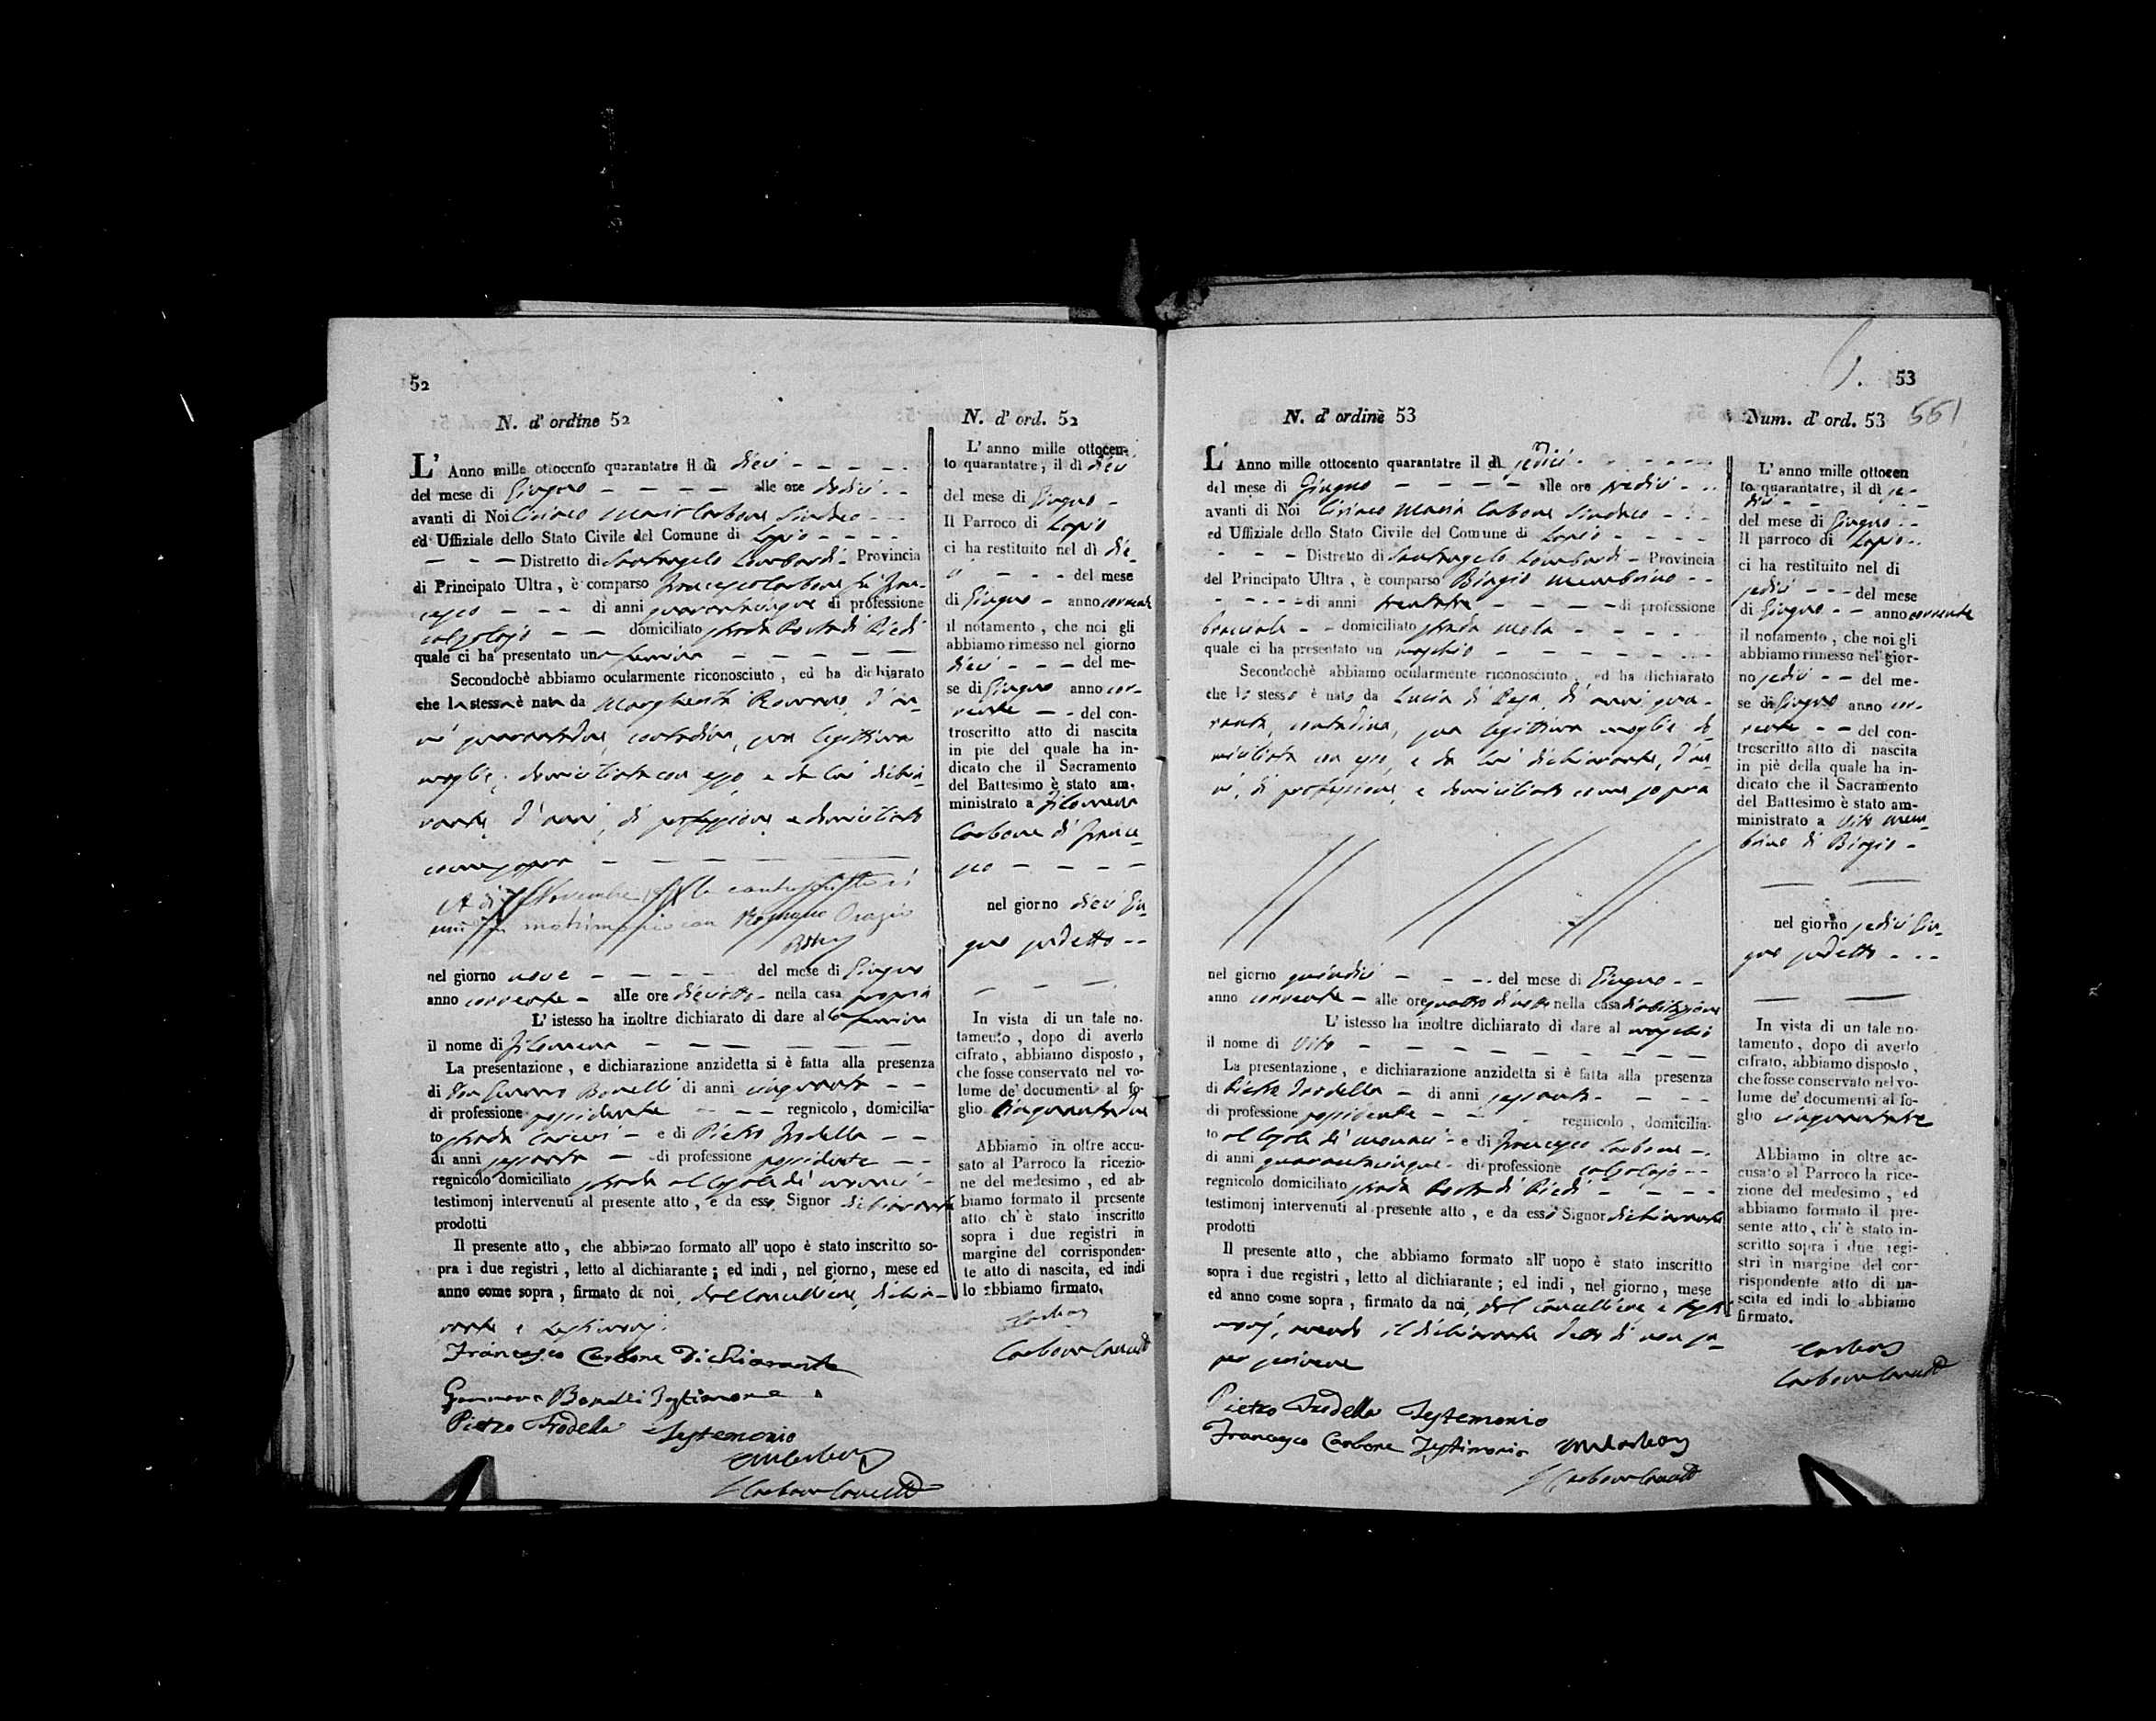 52
N. d' ordine 52
L' Anno mille ottocento quarantatre il dì dieci
del mese di Giugno alle ore dodici
avanti di Noi Ciriaco Maria Carbone Sindaco
ed Uffiziale dello Stato Civile del Comune di Lapio
Distretto di Santangelo Lombardi Provincia
di Principato Ultra, è comparso Francesco Carbone fu Fran-
cesco di anni quarantacinque di professione
calzolajo domiciliato strada Porta di Piedi
quale ci ha presentato una femina
Secondochè abbiamo ocularmente riconosciuto, ed ha dichiarato
che la stessa è nata da Margherita Romano, d'an-
ni quarantadue, contadina, sua legittima
moglie, domiciliata con esso, e da lui dichia-
rante, d'anni, di professione, e domiciliato
come sopra
A dì Novembre la controscritta si
unì in matrimonio con Romano Orazio
nel giorno nove del mese di Giugno
anno corrente alle ore dieciotto nella casa propria
L' istesso ha inoltre dichiarato di dare alla femina
il nome di Filomena
La presentazione, e dichiarazione anzidetta si è fatta alla presenza
di Don Gennaro Bonelli di anni cinquanta
di professione possidente regnicolo, domicilia-
to strada Carceri e di Pietro Frodella
di anni sessanta di professione possidente
regnicolo domiciliato strada
testimonj intervenuti al presente atto, e da esso Signor dichiarante
prodotti
Il presente atto, che abbiamo formato all' uopo è stato inscritto so-
pra i due registri, letto al dichiarante; ed indi, nel giorno, mese ed
anno come sopra, firmato da noi, dal Cancelliere, dichia-
rante e testimonj.
Francesco Carbone Dichiarante
Gennaro Bonelli Testimone
Pietro Frodella Testemonio
N. d' ord. 52
L' anno mille ottocen-
to quarantatre, il dì dieci
del mese di Giugno
Il Parroco di Lapio
ci ha restituito nel dì die-
ci del mese
di Giugno anno corrente
il notamento, che noi gli
abbiamo rimesso nel giorno
dieci del me-
se di Giugno anno cor-
rente del con-
troscritto atto di nascita
in piè del quale ha in-
dicato che il Sacramento
del Battesimo è stato am-
ministrato a Filomena
Carbone di France-
sco
nel giorno dieci Giu-
gno sudetto
In vista di un tale no-
tamento, dopo di averlo
cifrato, abbiamo disposto,
che fosse conservato nel vo-
lume de' documenti al fo-
glio Cinquantadue
Abbiamo in oltre accu-
sato al Parroco la ricezio-
ne del medesimo, ed ab-
biamo formato il presente
atto ch' è stato inscritto
sopra i due registri in
margine del corrisponden-
te atto di nascita, ed indi
lo abbiamo firmato.
53
551
N. d' ordine 53
L' Anno mille ottocento quarantatre il dì sedici
del mese di Giugno alle ore tredici
avanti di Noi Ciriaco Maria Carbone Sindaco
ed Uffiziale dello Stato Civile del Comune di Lapio
Distretto di Santangelo Lombardi Provincia
del Principato Ultra, è comparso Biagio Membrino
di anni trentatre di professione
bracciale domiciliato strada Mela
quale ci ha presentato un maschio
Secondochè abbiamo ocularmente riconosciuto, ed ha dichiarato
che lo stesso è nato da Lucia di Rosa, di anni qua-
ranta, contadina, sua legittima moglie do-
miciliata con esso, e da lui dichiarante, d'an-
ni, di professione, e domiciliato come sopra
nel giorno quindici del mese di Giugno
anno corrente alle ore quattro di notte nella casa d'abitazione
L' istesso ha inoltre dichiarato di dare al maschio
il nome di Vito
La presentazione, e dichiarazione anzidetta si è fatta alla presenza
di Pietro Frodella di anni sessanta
di professione possidente regnicolo, domicilia-
to e di Francesco Carbone
di anni quarantacinque di professione calzolajo
regnicolo domiciliato strada Porta di Piedi
testimonj intervenuti al presente atto, e da essi Signor dichiarante
prodotti
Il presente atto, che abbiamo formato all' uopo è stato inscritto
sopra i due registri, letto al dichiarante; ed indi, nel giorno, mese
ed anno come sopra, firmato da noi, dal Cancelliere e testi-
monj, avendo il dichiarante detto di non sa-
per scrivere
Pietro Frodella Testemonio
Francesco Carbone Testimonio
Num. d' ord. 53
L' anno mille ottocen
to quarantatre, il dì se-
dici
del mese di Giugno
Il parroco di Lapio
ci ha restituito nel di
sedici del mese
di Giugno anno corrente
il notamento, che noi gli
abbiamo rimesso nel gior-
no sedici del me-
se di Giugno anno cor-
rente del con-
troscritto atto di nascita
in piè della quale ha in-
dicato che il Sacramento
del Battesimo è stato am-
ministrato a Vito Mem-
brino di Biagio
nel giorno sedici Giu-
gno sudetto
In vista di un tale no-
tamento, dopo di averlo
cifrato, abbiamo disposto,
che fosse conservato nel vo-
lume de' documenti al fo-
glio cinquantatre
Abbiamo in oltre ac-
cusato al Parroco la rice-
zione del medesimo, ed
abbiamo formato il pre-
sente atto, ch' è stato in-
scritto sopra i due regi-
stri in margine del cor-
rispondente atto di na-
scita ed indi lo abbiamo
firmato.